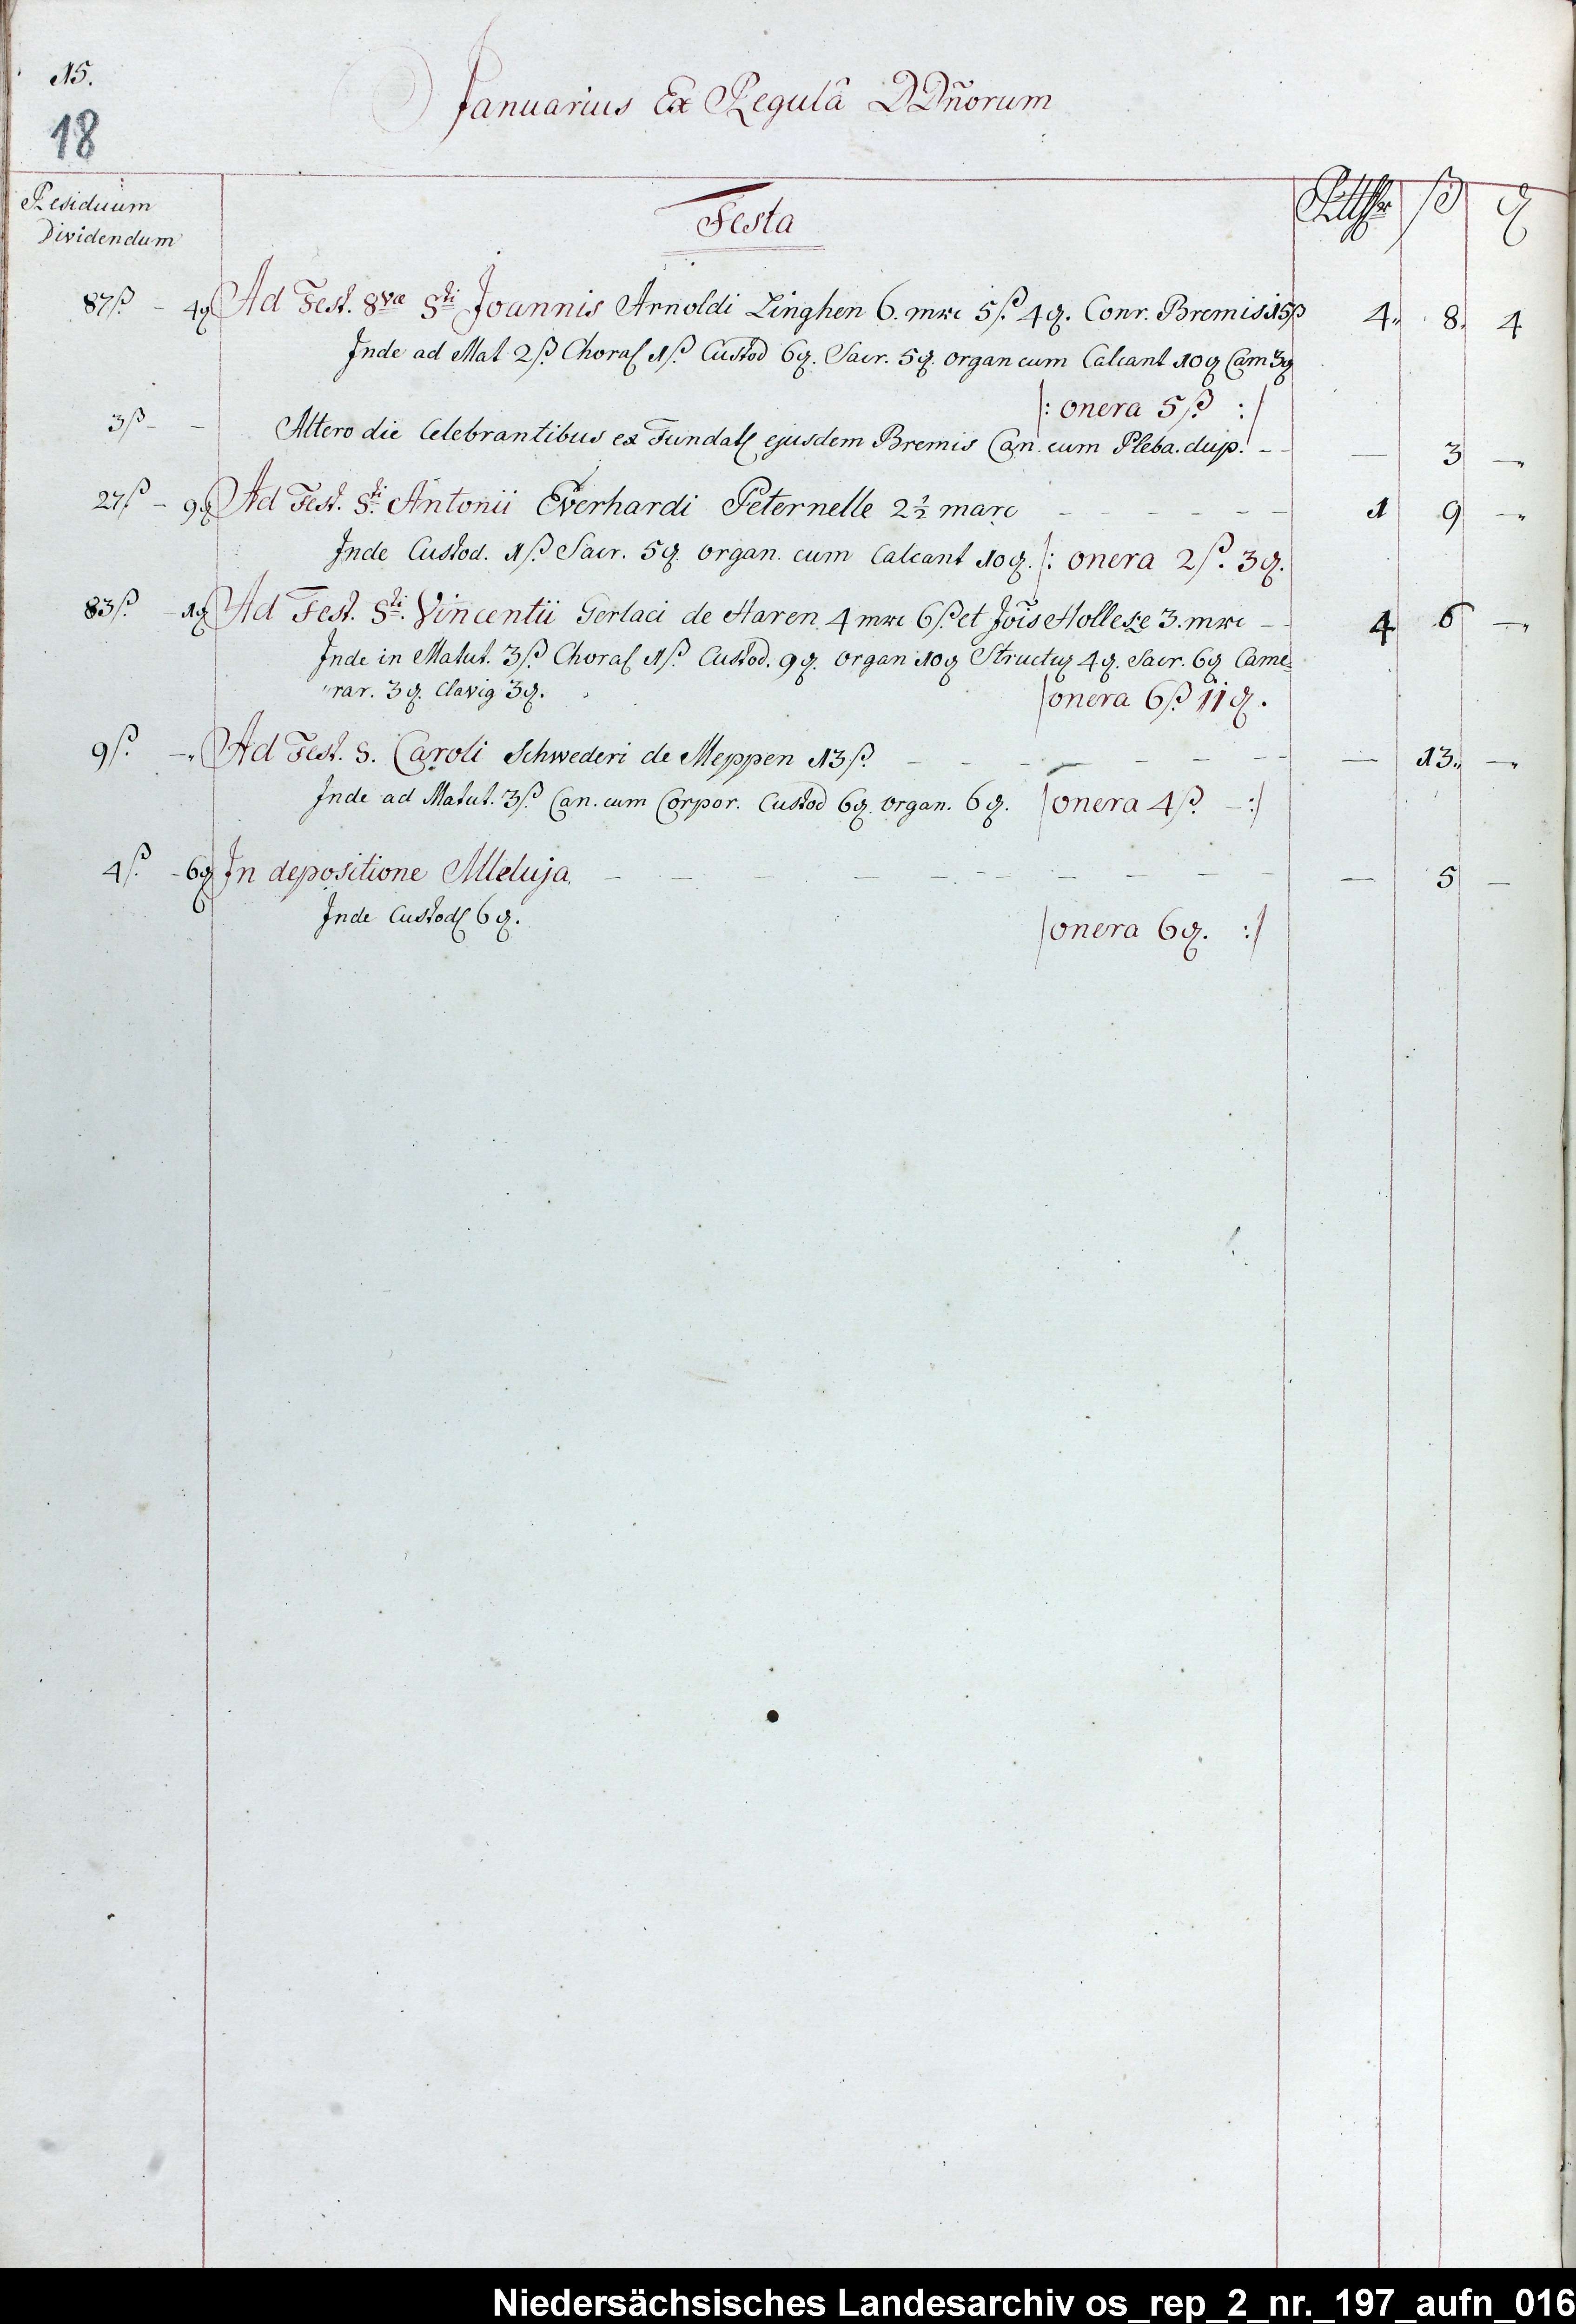 15.
18
Januarius Ex Regulâ DDn̄orum
Residuum Dividendum
Festa
Rtthlr ß ₰
87ß. - 4₰ Ad Fest. 8væ Sti Joannis Arnoldi Linghen 6. mrc 5ß. 4₰. Conr. Bremis 15ß 4. 8. 4
Inde ad Mat 2ß. Choral 1ß. Custod 6₰. Sacr. 5₰. organ cum Calcant 10₰ Cam 3₰
|: onera 5ß. :|
3ß - - Altero die Celebrantibus ex Fundat ejusdem Bremis Can. cum Pleba. dup. - - — 3 —
27ß - 9₰ Ad Fest. Sti. Antonii Everhardi Peternelle 2½ marc - - - - - - 1 9 —
Inde Custod. 1ß. Sacr. 5₰. organ. cum Calcant 10₰. |: onera 2ß. 3₰.
83ß. - 1₰ Ad Fest. Sti. Vincentii Gerlaci de Haren 4 mrc 6ß. et Jōis Hollese 3. mrc - - 4 6 —
Inde in Matut. 3ß. Choral 1ß. Custod. 9₰. organ 10₰ Structuȝ 4₰. Sacr. 6₰ Came=
rar. 3₰. Clavig 3₰. |onera 6ß. 11₰.
9ß. - Ad Fest. S. Caroli Schwederi de Meppen 13ß. - - - - - - - - — 13. —
Inde ad Matut. 3ß. Can. cum Corpor. Custod 6₰. organ. 6₰. |onera 4ß. - :|
4ß. - 6₰ In depositione Alleluja. - - - - - - - - - - — 5 —
Inde Custod 6₰.
|onera 6₰. :|
Niedersächsisches Landesarchiv os_rep_2_nr._197_aufn_016